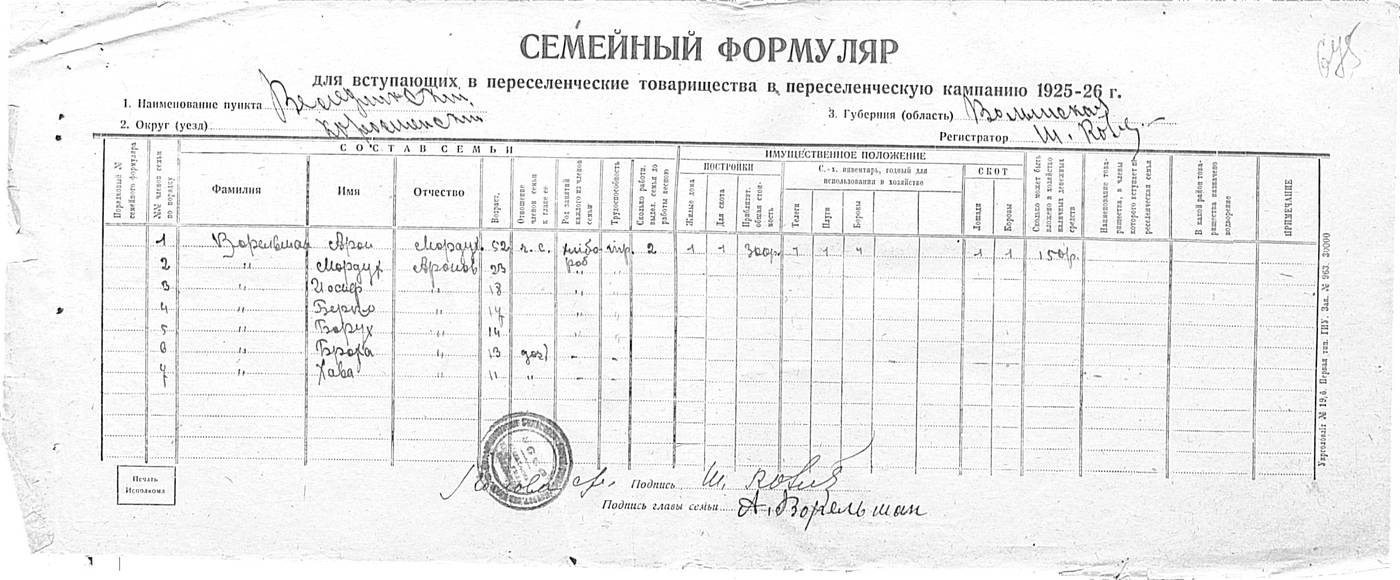 СЕМЕЙНЫЙ ФОРМУЛЯР
для вступающих в переселенческие товарищества в переселенческую кампанию 1925-26 г.
1. Наименование пункта
3. Губерния (область) Волынская
2. Округ (уезд)
Регистратор Ш.
СОСТАВ СЕМЬИ
ИМУЩЕСТВЕННОЕ ПОЛОЖЕНИЕ
Порядковый № семейного формуляра
№№ членов семьи по порядку
Фамилия
Имя
Отчество
Возраст.
Отношение членов семьи к главе ее
Род занятий каждого из членов семьи
Трудоспособность
Сколько работн. выдел. семья до работы весною
ПОСТРОЙКИ
Жилые дома
Для скота
Приблизит. общая стоимость
С.-х. инвентарь, годный для использования в хозяйстве
Телеги
Плуги
Бороны
СКОТ
Лошади
Коровы
Сколько может быть вложено в хозяйство наличных денежных средств
Наименование товарищества, в члены которого вступает переселенческая семья
В какой район товарищества назначено водворение
ПРИМЕЧАНИЕ
1 Ворельман Арон Мордух. 52 г. с. хлибороб 2 1 1 300р. 1 1 1 1 150р.
2 " Мордух Аронов 23 "
3 " Иосиф " 18 "
4 " Берко " 17 "
5 " Борух " 14 "
6 " " 13 доч) -
7 " Хава " 11 " -
Печать Исполкома
Голова с/р. Подпись Ш.
Подпись главы семьи А. Ворельман
Укрголовліт № 19,6. Первая тип. ГИУ. Зак. № 963 30000